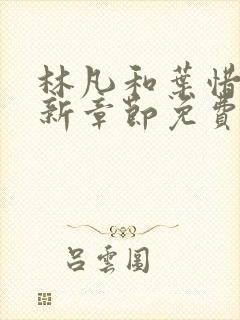 林凡和葉惜
新章節免費
呂雲圓